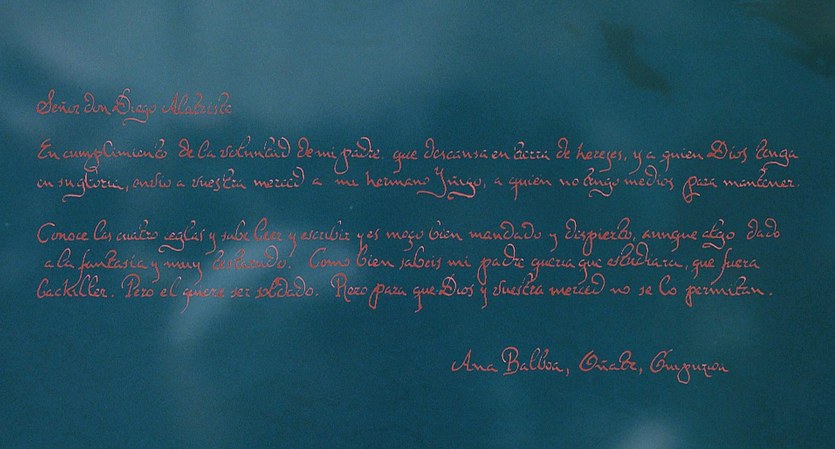 Señor don Diego Alatriste
En cumplimiento de la voluntad de mi padre que descansa en tierra de herejes, y a quien Dios tenga
en su gloria, envio a vuestra merced a mi hermano Yñigo, a quien no tengo medios para mantener.
Conoce las cuatro reglas y sabe leer y escribir y es moço bien mandado y dispierto, aunque algo dado
a la fantasia y muy testarudo. Como bien sabeis mi padre queria que estudiara, que fuera
bachiller. Pero el quiere ser soldado. Rezo para que Dios y vuestra merced no se lo permitan.
Ana Balboa, Oñate,